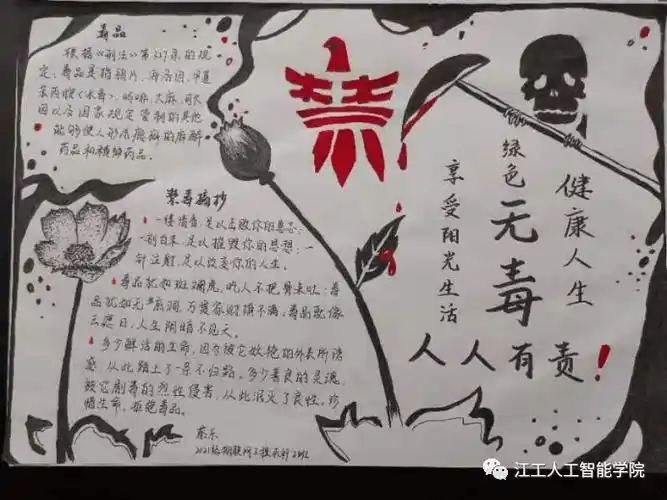 毒品
根据《刑法》第357条的规
定，毒品是指鸦片、海洛因、甲基
苯丙胺（冰毒）、吗啡、大麻、可卡
因以及国家规定管制的其他
能够使人形成瘾癖的麻醉
药品和精神药品。
禁
禁毒摘抄
一缕清香，足以击败你的意志；
一剂白末，足以摧毁你的思想；一
针注射，足以改变你的人生。
毒品犹如斑斓虎，吃人不把骨来吐；毒
品犹如无底洞，万贯家财填不满；毒品就像
云遮日，人生阴暗不见天。
多少鲜活的生命，因为被它妖艳的外表所诱
惑，从此踏上了一条不归路。多少善良的灵魂，
被它剧毒的烈性侵害，从此泯灭了良性。珍
惜生命，拒绝毒品。
健康人生
绿色
无毒
享受阳光生活
人人有责！
江工人工智能学院